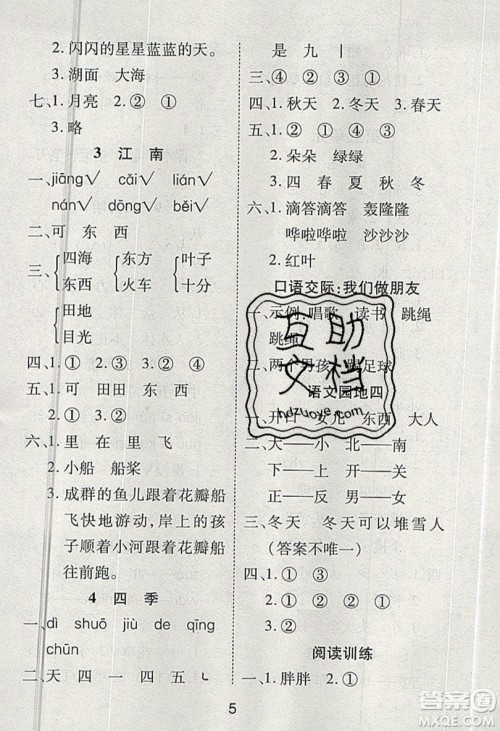 2.闪闪的星星蓝蓝的天。
3.湖面 大海
七、1.月亮 2.② ①
3.略
3 江南
一、jiāng√ cǎi√ lián√
nán√ dōng√ běi√
二、可 东 西
三、{四海 {东方 {叶子
东西 火车 十分
{田地
目光
四、1.② ① 2.② ①
五、1.可 田田 东 西
六、1.里 在 里 飞
2.小船 船桨
3.成群的鱼儿跟着花瓣船
飞快地游动，岸上的孩
子顺着小河跟着花瓣船
往前跑。
4 四季
一、dì shuō jiù de qīng
chūn
二、天 四 一 四 五 ㇃
是 九 丨
三、④ ② ① ③
四、1.秋天 2.冬天 3.春天
五、1.① ① ② ②
2.朵朵 绿绿
3.四 春 夏 秋 冬
六、1.滴答滴答 轰隆隆
哗啦哗啦 沙沙沙
2.红叶
口语交际:我们做朋友
一、示例:唱歌 读书 跳绳
跳绳
二、两个男孩 踢足球
语文园地四
一、开口 女儿 东西 大人
二、大——小 北——南
下——上 开——关
正——反 男——女
三、冬天 冬天可以堆雪人
(答案不唯一)
四、1.① ③
2.① ③
3.②
阅读训练
一、1.胖胖 2.①
5
互助
文档
hdzuoye.com
答案圈
MXQE.COM